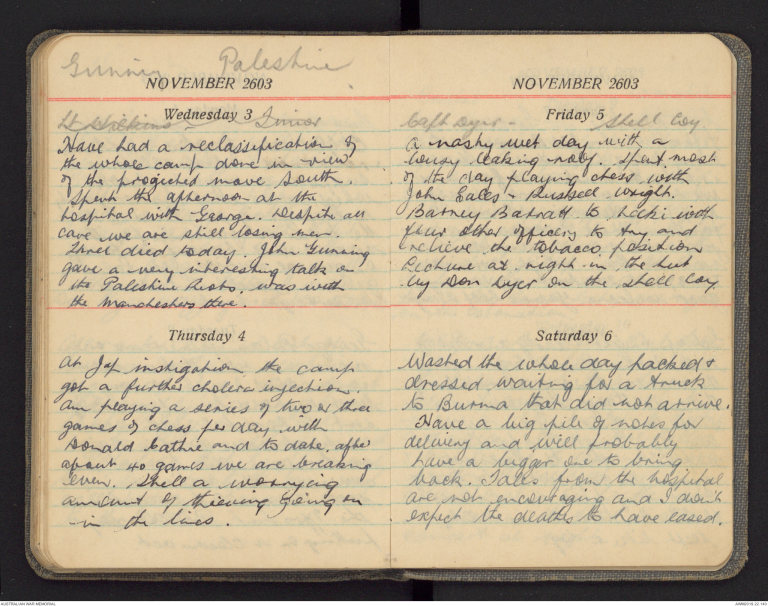 Gunning Palestine
NOVEMBER 2603
Wednesday 3
Lt Junior
Have had a reclassification of
the whole camp done in view
of the projected move South.
Spent the afternoon at the
hospital with George. Despite all
care we are still losing men.
Three died today. John Gunning
gave a very interesting talk on
the Palestine Riots, was with
the Manchesters there.
Thursday 4
At Jap instigation the camp
got a further cholera injection.
Am playing a series of two or three
games of chess per day with
Donald Cathie and to date, after
about 40 games we are breaking
even. Still a worrying
amount of thieving going on
in the lines.
NOVEMBER 2603
Friday 5
Capt Dyer - Shell Coy
A mashy wet day with a
lousy leaking roof. Spent most
of the day playing chess with
John Eales & Russell Wright.
Barney Barratt to with
four other officers to try and
relieve the tobacco position
Lecture at night in the hut
by Don Dyer on the Shell Coy
Saturday 6
Wasted the whole day packed &
dressed waiting for a truck
to Burma that did not arrive.
Have a big pile of notes for
delivery and will probably
have a bigger one to bring
back. Tales from the hospital
are not encouraging and I don't
expect the deaths to have eased.
AUSTRALIAN WAR MEMORIAL